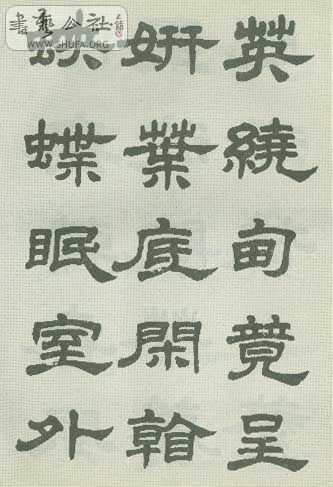 書藝公社
WWW.SHUFA.ORG
英繞甸竟呈
妍葉底閑看
蛺蝶眠室外